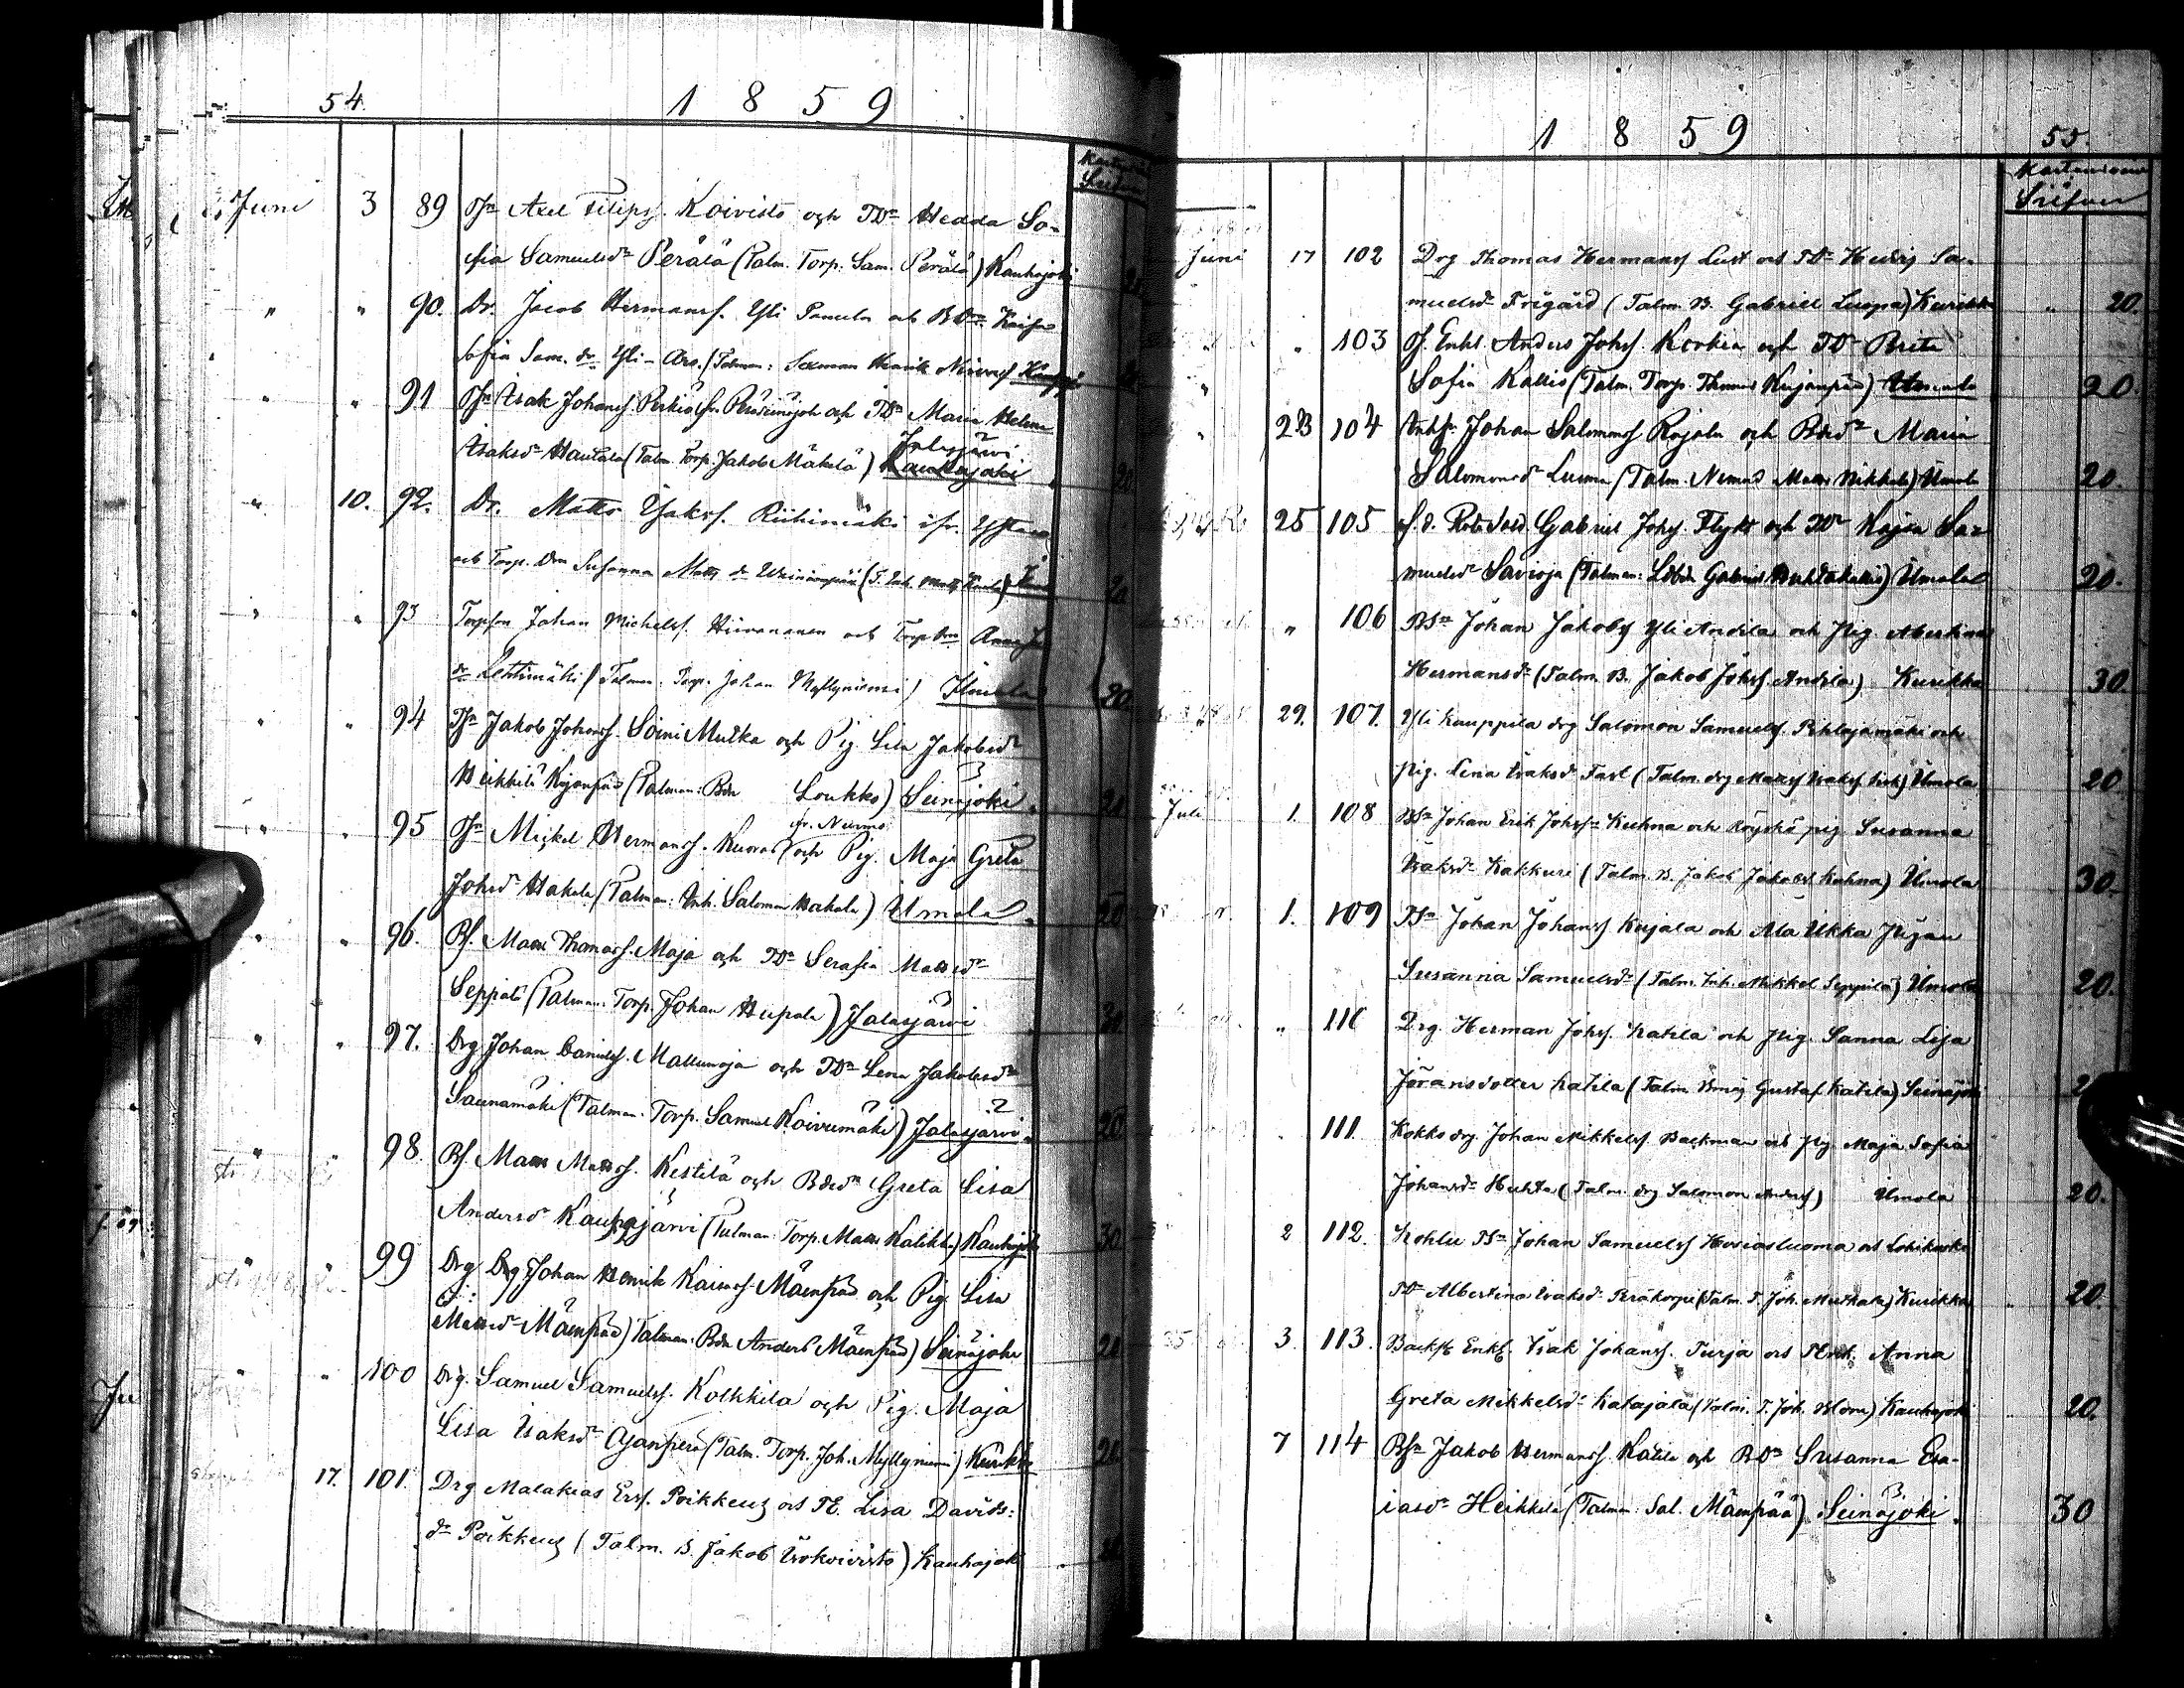 54. 1859
Juni 3 89 Tsn Axel Filipss. Koivisto och TDr Hedda So-
fia Samuelsdr Perälä (Talm. Torp. Sam. Perälä) Kauhajoki 20
" " 90. Dr. Jacob Hermanss. Yli Panula och BDr Kaisa
Sofia Sam. dr Yli-Aro. (Talman: Henrik
" " 91 Tsn Isak Johanss. Perkiö och TDr Maria Helena
Jalasjärvi.
Isaksdr Hautala (Talm. Torp. Jakob Mäkelä) Kauhajoki 20
" 10. 92. Dr. Matts Isakss. Riihimäki
och Torp. Drn Susanna Matts dr 20
" " 93 Torpson Johan Michelss. Hiironanen och Torp drn Anna
dr Lehtimäki (Talman. Torp. Johan Myllyniemi) Ilmola 20
" " 94 Tsn Jakob Johanss. Soini Mutka och Pig. Lisa Jakobsdr
Heikkilä Kujanpää (Talman: Bdn Loukko) Seinäjoki. 20
fr. Nurmo
" " 95 Tsn Mickel Hermanss. Kuoras och Pig. Maja Greta
Johsdr Hakala (Talman: Inh. Salomon Hakala) Ilmola 20
" " 96. Bs. Matts Thomass. Maja och TDr Serafia Mattsdr
Seppälä (Talman: Torp. Johan Hupala) Jalasjärvi 30
" " 97. Drg Johan Daniels. Mallunoja och TDr Lena Jakobsdr
Saunamäki (Talman: Torp. Samuel Koivumäki) Jalasjärvi. 20
" " 98. Bs. Matts Mattss. Kestilä och Bdrdr Greta Lisa
Andersdr Kauhajärvi (Talman: Torp. Matts Kalikka) Kauhajoki 30
" " 99 Drg Johan Henrik Mäenpää och Pig. Lisa
Mattsdr Mäenpää (Talman: Bdn Anders Mäenpää) Seinäjoki 20
" " 100 Drg. Samuel Samuelss. Kolkkila och Pig. Maja
Lisa Isaksdr Ojanperä (Talm. Torp. Joh. Myllyniemi) Kurikka 20
17. 101. Drg Malakias Erss. Poikkeus och TE. Lisa Davids:
dr Poikkeus (Talm. B. Jakob Isokoivisto) Kauhajoki
1859 55.
Juni 17 102 Drg Thomas Hermanss Lust och TDr Hedvig Sa-
muelsdr Frigård (Talm. B. Gabriel Luopa) Kurikka " 20.
" " 103 Tf. Enkl. Anders Johss. Korkia och TDr Brita
Sofia Kallio (Talm. Torp. Thomas Kujanpää) Ilmola 20.
" 23 104 Inhsn Johan Salomonss Rajala och Bdrdr Maria
Salomonsdr Luoma (Talm. Matts Nikkola) Ilmola 20.
25 105 f. d. Rote Sold. Gabriel Johs. Flykt och TDr Kajsa Sa-
muelsdr Savioja (Talman: Gabriel Huhtakallio) Ilmola 20.
" 106 Bsn Johan Jakobss Yli Andila och Pig. Albertina
Hermansdr (Talm. B. Jakob Johss. Andila) Kurikka 30.
29. 107. Yli Kauppila drg Salomon Samuels. Pihlajamäki och
pig. Lena Isaksdr Tast (Talm. drg Matts Isakss. ) Ilmola 20
Juli 1. 108 Bsn Johan Erik Johssn Kuhna och Röyskö pig. Susanna
Isaksdr Kakkuri (Talm. B. Jakob Jakobss Kuhna) Ilmola 30.
1. 109 Tsn Johan Johanss Kujala och Ala Ukka Pigan
Susanna Samuelsdr (Talm. Inh. Mikkel Seppilä) Ilmola 20.
" 110 Drg. Herman Johss. Katila och Pig. Sanna Lisa
Göransdotter Katila (Talm. Gustaf Katila) Seinäjoki
111 Kokko drg. Johan Mikkelss. Backman och Pig. Maja Sofia
Johansdr Huhta (Talm. drg Salomon Anderss) Ilmola 20.
2 112. Tsn Johan Samuelss Hosiasluoma och
TDr Albertina Isaksdr Peräkorpi (Talm. T. Joh. ) Kurikka 20.
3. 113. Enkl. Isak Johanss. Turja och Anna
Greta Mikkelsdr Katajala (Talm. T. Joh. Blom) Kauhajoki 20.
7 114 Bsn Jakob Hermanss. Katila och BDr Susanna Esa-
iasdr Heikkilä (Talman: Sal. Mäenpää). Seinäjoki. 30